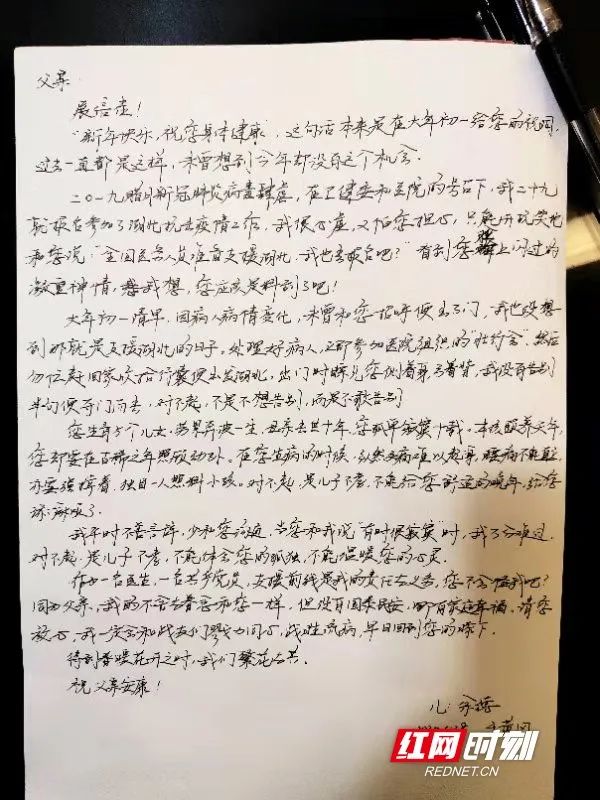 父亲
展信佳！
“新年快乐，祝您身体健康”，这句话本来是在大年初一给您的祝词，
过去一直都是这样，未曾想到今年却没有这个机会。
二〇一九腊月新冠肺炎病毒肆虐，在卫健委和医院的号召下，我二十九
就报名参加了湖北抗击疫情工作，我很心虚，又怕您担心，只能开玩笑地
和您说：“全国医务人员准备支援湖北，我也去报名吧？”看到您脸上闪过的
凝重神情，我想，您应该是料到了吧！
大年初一清早，因病人病情变化，未曾和您一招呼便出了门，我也没想
到那就是支援湖北的日子。处理好病人，立即参加医院组织的“壮行会”，然后
匆忙赶回家收拾行囊便出发湖北，出门时瞟见您侧着身弓着背，我没有告别
半句便夺门而去，对不起，不是不想告别，而是不敢告别
您生育5个儿女，劳累奔波一生，母亲去世十年，您孤单寂寞十载。本该颐养天年，
您却要在古稀之年照顾幼孙。在您生病的时候，纵然头痛难以起身，腰痛不能直立，
亦要强撑着，独自一人照料小孩。对不起，是儿子不孝，不能给您舒适的晚年，给您
添麻烦了。
我平时不善言辞，少和您谈近，当您和我说“有时很寂寞”时，我十分难过，
对不起，是儿子不孝，不能体会您的孤独，不能温暖您的心灵。
作为一名医生，一名共产党员，支援前线是我的责任与义务，您不会怪我吧？
同为父亲，我的不舍与眷恋和您一样，但没有国泰民安，哪有家庭幸福。请您
放心，我一定会和战友们勠力同心，战胜疫病，早日回到您的膝下。
待到春暖花开之时，我们繁花与共。
祝父亲安康！
儿：
红网时刻
REDNET.CN